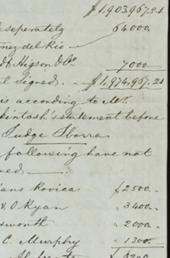 $1,903,957.21
seperately 64000
nez del Rio
& Higson & Co. 7000
l Signed. $1,974,957.21
is according to Mr.
kintosh's statement before
Judge Ibarra
following have not
ned
ans Rovira $2500.
& O Ryan 3400
smouth 2000
C. Murphy 1300